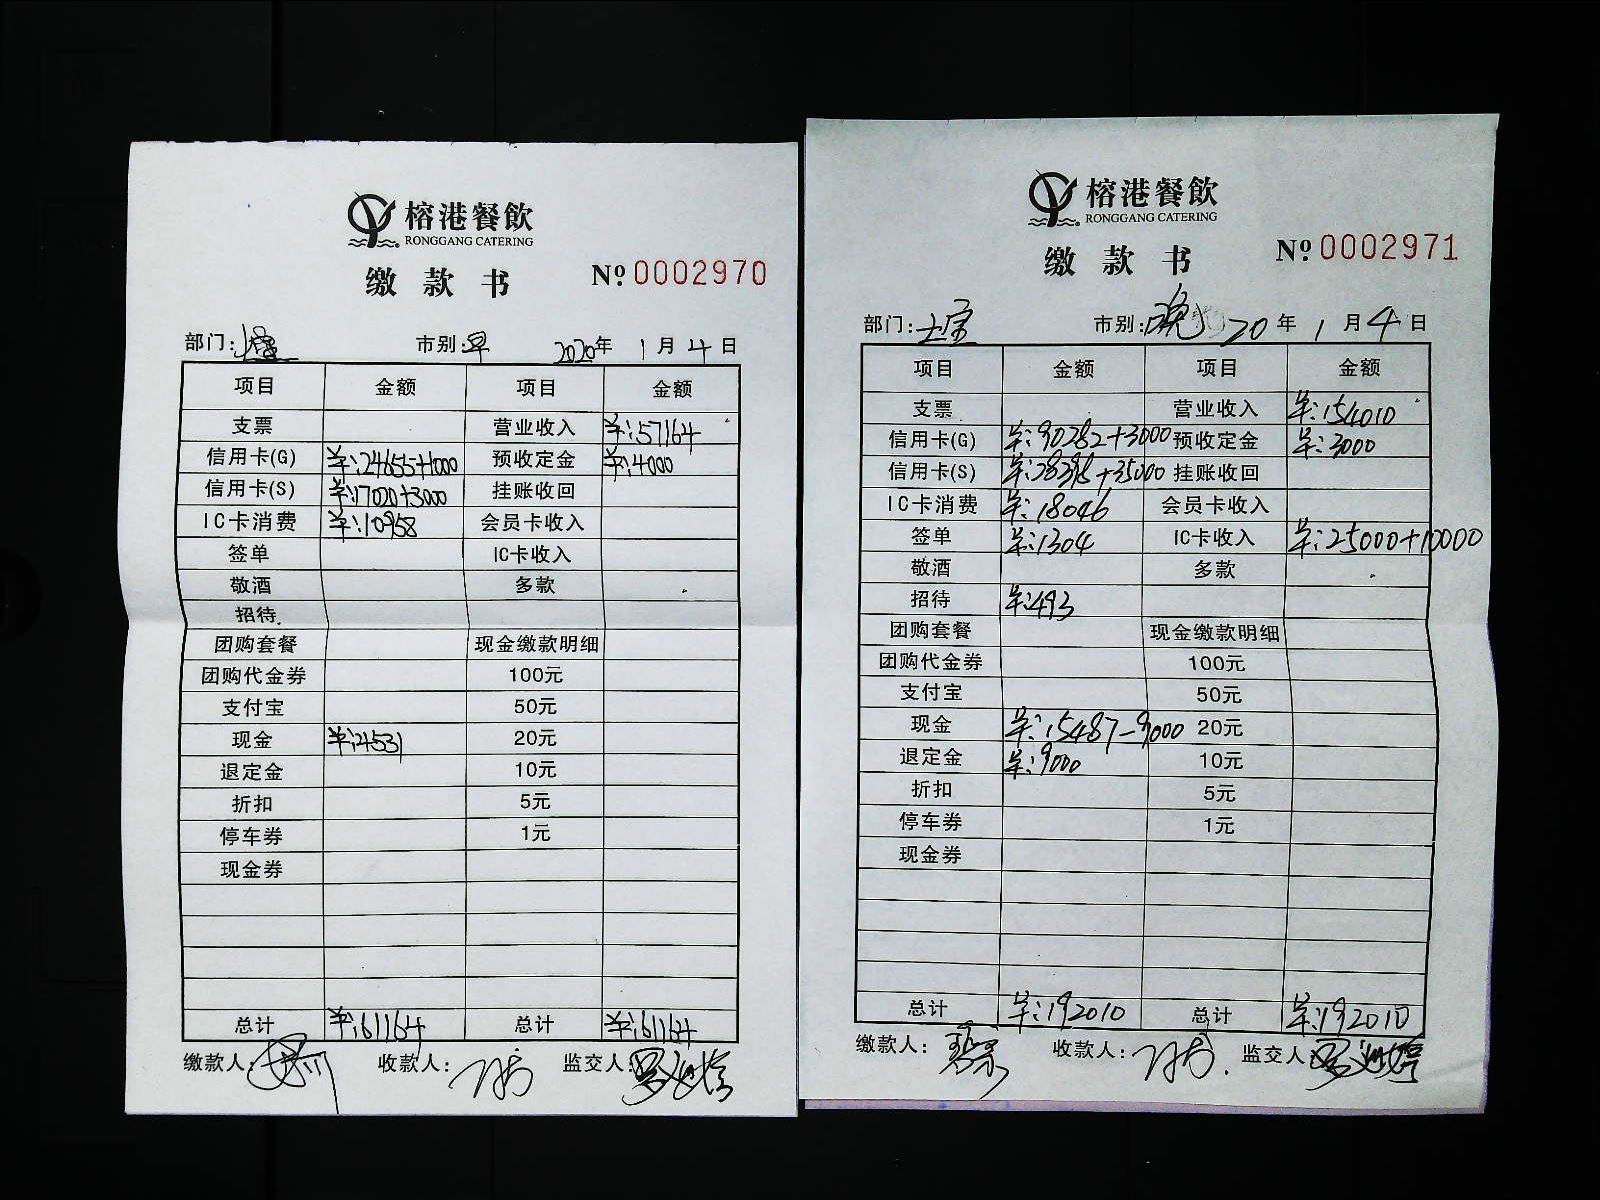 榕港餐飲
RONGGANG CATERING
缴款书 № 0002970
部门: 市别:早 2020年 1月 4日
项目 金额 项目 金额
支票 营业收入 ¥:57164
信用卡(G) ¥:24655+1000 预收定金 ¥:4000
信用卡(S) ¥:17020+3000 挂账收回
IC卡消费 ¥:10958 会员卡收入
签单 IC卡收入
敬酒 多款
招待
团购套餐 现金缴款明细
团购代金券 100元
支付宝 50元
现金 ¥:4531 20元
退定金 10元
折扣 5元
停车券 1元
现金券
总计 ¥:61164 总计 ¥:61164
缴款人: 收款人: 监交人:
榕港餐飲
RONGGANG CATERING
缴款书 № 0002971
部门: 市别:晚 20年 1月 4日
项目 金额 项目 金额
支票 营业收入 ¥:154010
信用卡(G) ¥:90282+3000 预收定金 ¥:3000
信用卡(S) ¥:28398+35000 挂账收回
IC卡消费 ¥:18046 会员卡收入
签单 ¥:1304 IC卡收入 ¥:25000+10000
敬酒 多款
招待 ¥:493
团购套餐 现金缴款明细
团购代金券 100元
支付宝 50元
现金 ¥:15487-9000 20元
退定金 ¥:9000 10元
折扣 5元
停车券 1元
现金券
总计 ¥:192010 总计 ¥:192010
缴款人: 收款人: 监交人